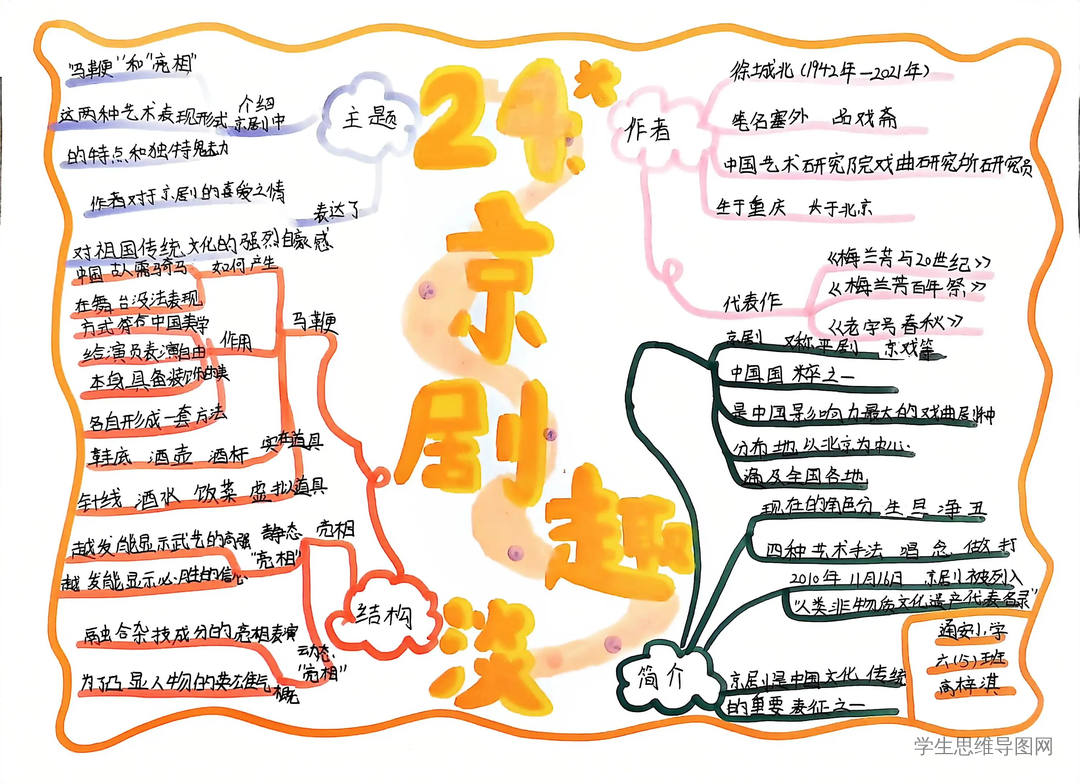 24*
京
剧
趣
谈
主题
"马鞭"和"亮相"
这两种艺术表现形式
介绍
京剧中
的特点和独特魅力
作者对于京剧的喜爱之情
表达了
对祖国传统文化的强烈自豪感
作者
徐城北(1942年—2021年)
笔名塞外 品戏斋
中国艺术研究院戏曲研究所研究员
生于重庆 长于北京
代表作
《梅兰芳与20世纪》
《梅兰芳百年祭》
《老字号春秋》
结构
马鞭
如何产生
中国古人需骑马
在舞台没法表现
作用
方式符合中国美学
给演员表演自由
本身具备装饰的美
各自形成一套方法
实在道具
鞋底 酒壶 酒杯
虚拟道具
针线 酒水 饭菜
亮相
静态
"亮相"
越发能显示武艺的高强
越发能显示必胜的信心
动态
"亮相"
融合杂技成分的亮相表演
为了凸显人物的英雄气概
简介
京剧 又称平剧 京戏等
中国国粹之一
是中国影响力最大的戏曲剧种
分布地以北京为中心
遍及全国各地
现在的角色分生旦净丑
四种艺术手法 唱念做打
2010年11月16日 京剧被列入
"人类非物质文化遗产代表名录"
京剧是中国文化传统
的重要表征之一
通安小学
六(5)班
高梓淇
学生思维导图网